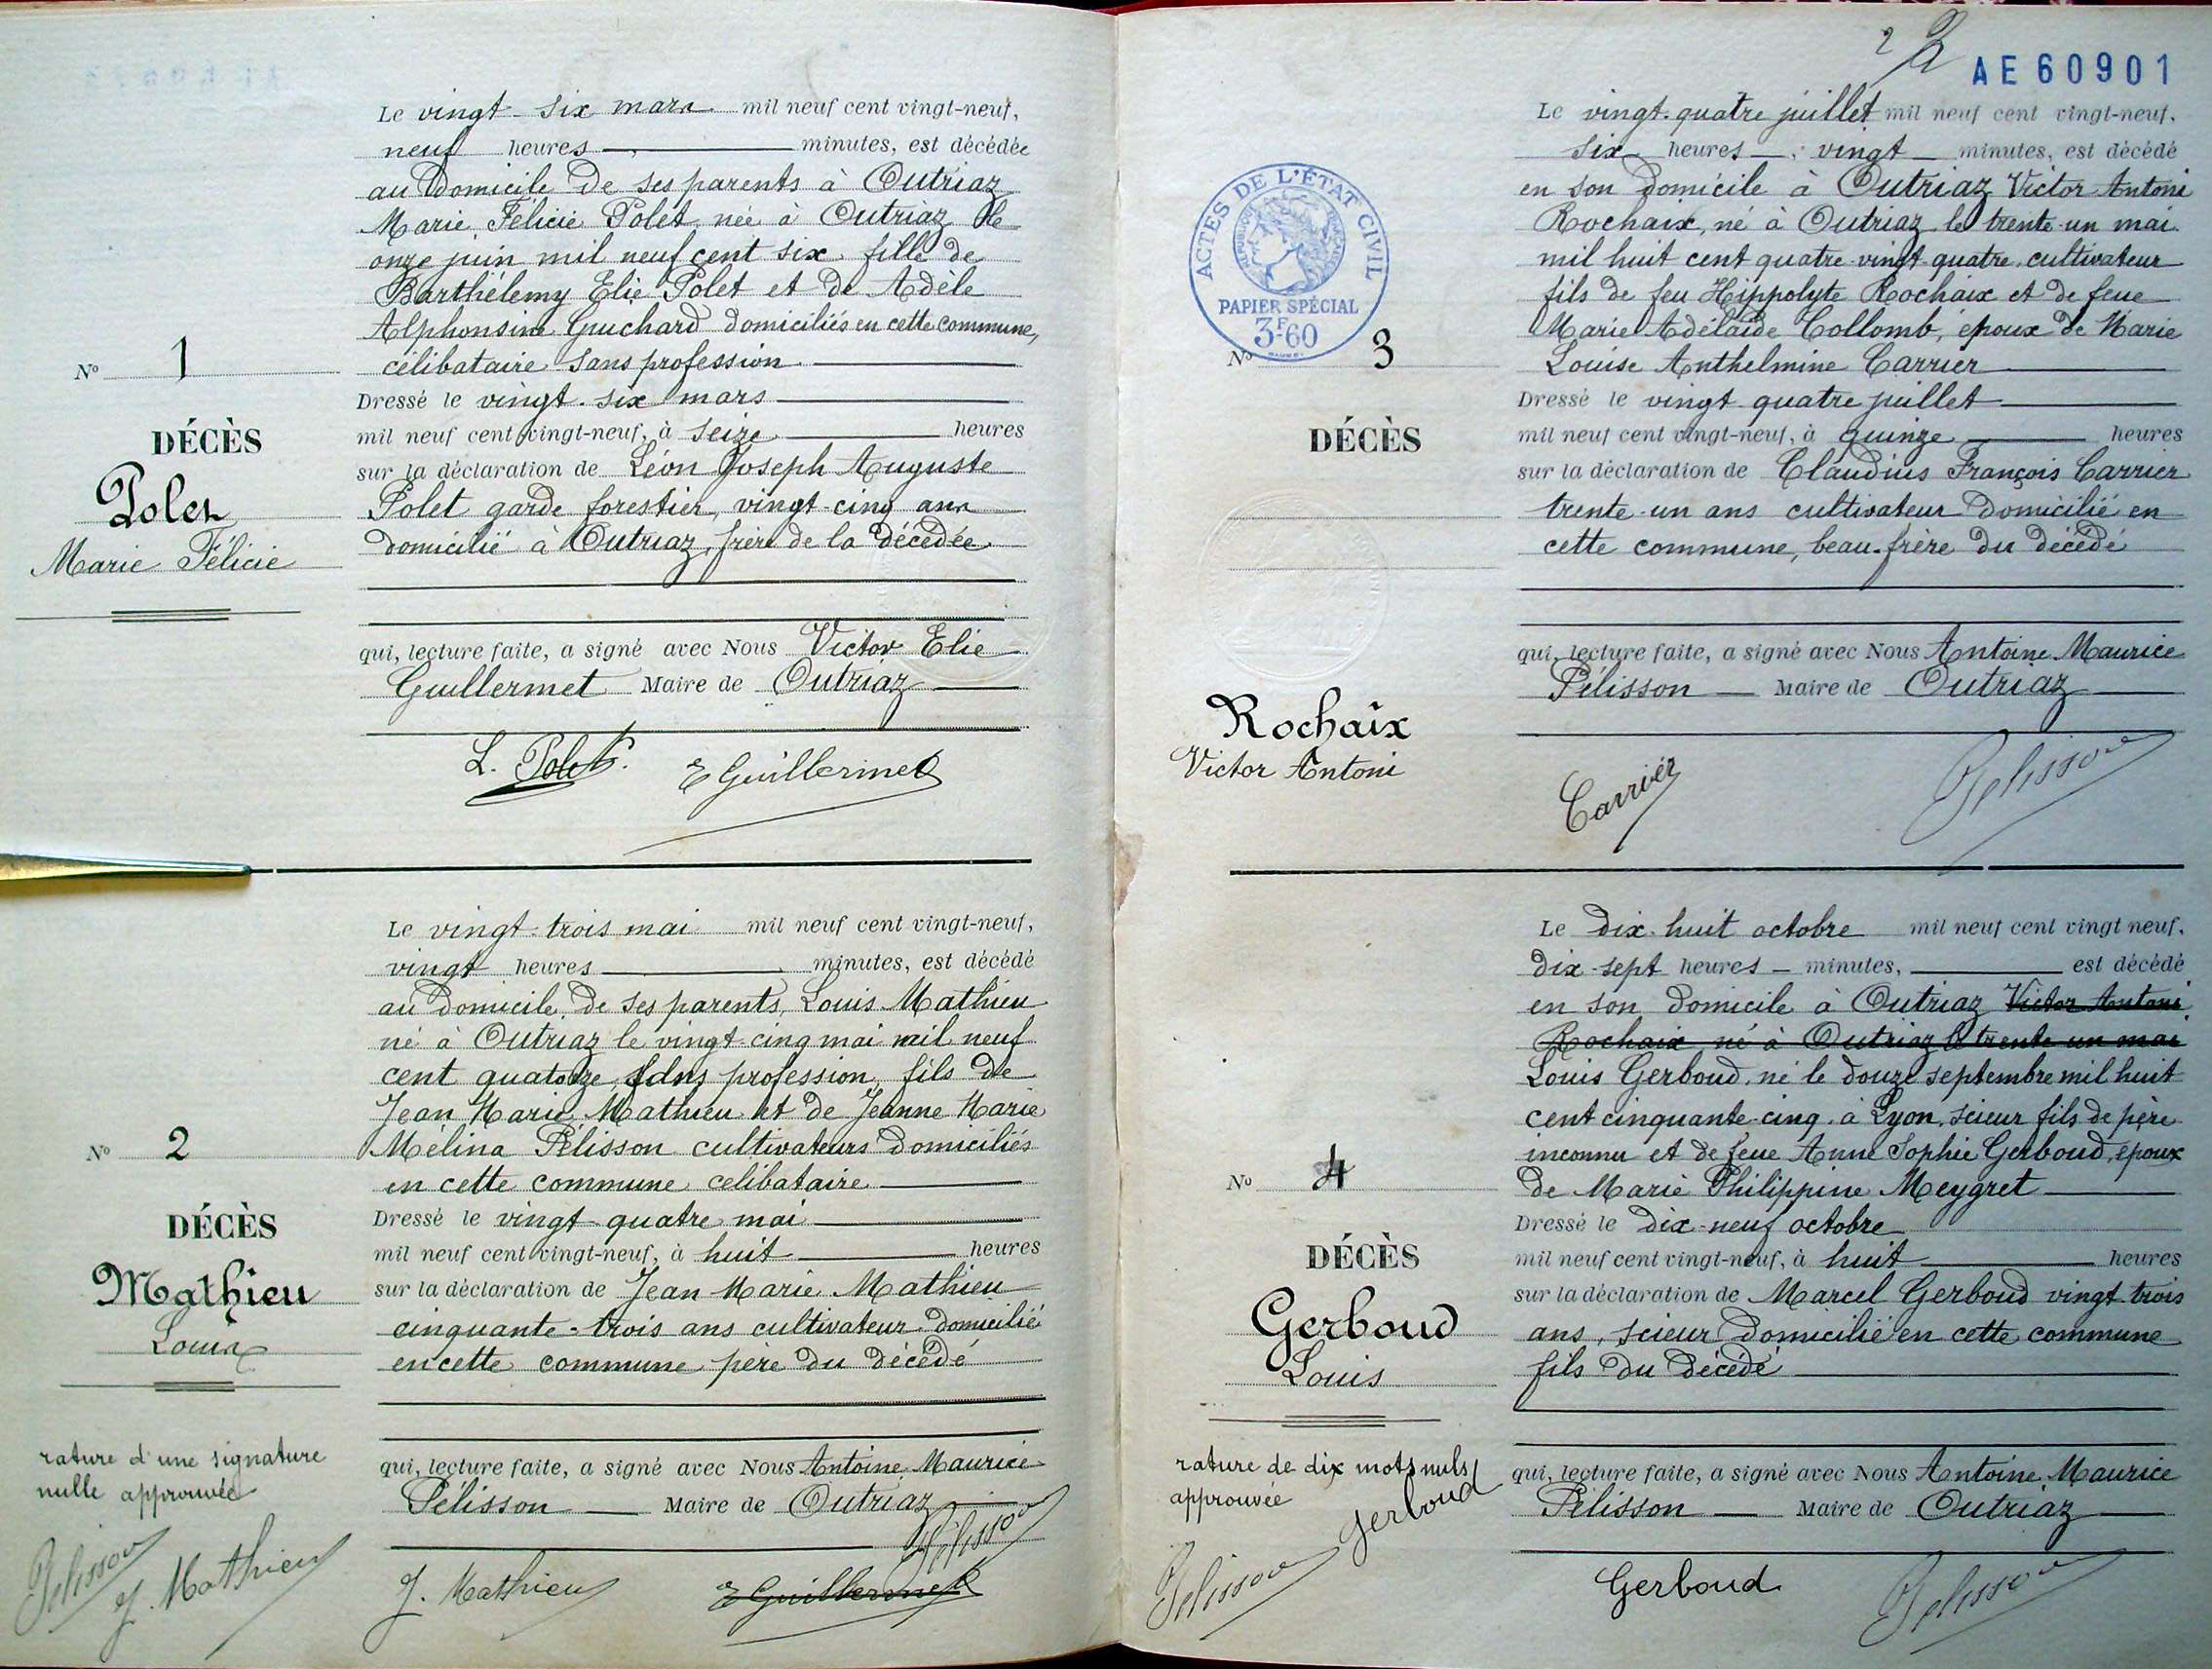 Le vingt-six mars mil neuf cent vingt-neuf,
neuf heures minutes, est décédée
au domicile de ses parents à Outriaz
Marie Félicie Polet, née à Outriaz le
onze juin mil neuf cent six, fille de
Barthélemy Elie Polet et de Adèle
Alphonsine Guichard domiciliés en cette commune,
célibataire sans profession
Dressé le vingt-six mars
mil neuf cent vingt-neuf, à seize heures
sur la déclaration de Léon Joseph Auguste
Polet garde forestier, vingt-cinq ans
domicilié à Outriaz, frère de la décédée
qui, lecture faite, a signé avec Nous Victor Elie
Guillermet Maire de Outriaz
L. Polet. E Guillermet
N° 1
DÉCÈS
Polet
Marie Félicie
Le vingt-trois mai mil neuf cent vingt-neuf,
vingt heures minutes, est décédé
au domicile de ses parents, Louis Mathieu
né à Outriaz le vingt-cinq mai mil neuf
cent quatorze, sans profession, fils de
Jean Marie Mathieu et de Jeanne Marie
Mélina Pélisson cultivateurs domiciliés
en cette commune célibataire
Dressé le vingt-quatre mai
mil neuf cent vingt-neuf, à huit heures
sur la déclaration de Jean Marie Mathieu
cinquante-trois ans cultivateur domicilié
en cette commune père du décédé
qui, lecture faite, a signé avec Nous Antoine Maurice
Pélisson Maire de Outriaz
Pélisson
J. Mathieu E Guillermet
N° 2
DÉCÈS
Mathieu
Louis
rature d'une signature
nulle approuvée
Pélisson
J. Mathieu
2
AE 60901
Le vingt-quatre juillet mil neuf cent vingt-neuf,
six heures vingt minutes, est décédé
en son domicile à Outriaz Victor Antoni
Rochaix, né à Outriaz le trente-un mai
mil huit cent quatre-vingt-quatre, cultivateur
fils de feu Hippolyte Rochaix et de feue
Marie Adélaïde Collomb, époux de Marie
Louise Anthelmine Carrier
Dressé le vingt-quatre juillet
mil neuf cent vingt-neuf, à quinze heures
sur la déclaration de Claudius François Carrier
trente-un ans cultivateur domicilié en
cette commune, beau-frère du décédé
qui, lecture faite, a signé avec Nous Antoine Maurice
Pélisson Maire de Outriaz
Carrier Pélisson
ACTES DE L'ÉTAT CIVIL
RÉPUBLIQUE FRANÇAISE
PAPIER SPÉCIAL
3F60
N° 3
DÉCÈS
Rochaix
Victor Antoni
Le dix-huit octobre mil neuf cent vingt neuf,
dix-sept heures minutes, est décédé
en son domicile à Outriaz Victor Antoni
Rochaix né à Outriaz le trente un mai
Louis Gerboud, né le douze septembre mil huit
cent cinquante-cinq, à Lyon, scieur fils de père
inconnu et de feue Anne Sophie Gerboud, époux
de Marie Philippine Meygret
Dressé le dix-neuf octobre
mil neuf cent vingt-neuf, à huit heures
sur la déclaration de Marcel Gerboud vingt-trois
ans, scieur domicilié en cette commune
fils du décédé
qui, lecture faite, a signé avec Nous Antoine Maurice
Pélisson Maire de Outriaz
Gerboud Pélisson
N° 4
DÉCÈS
Gerboud
Louis
rature de dix mots nuls
approuvée
Gerboud
Pélisson